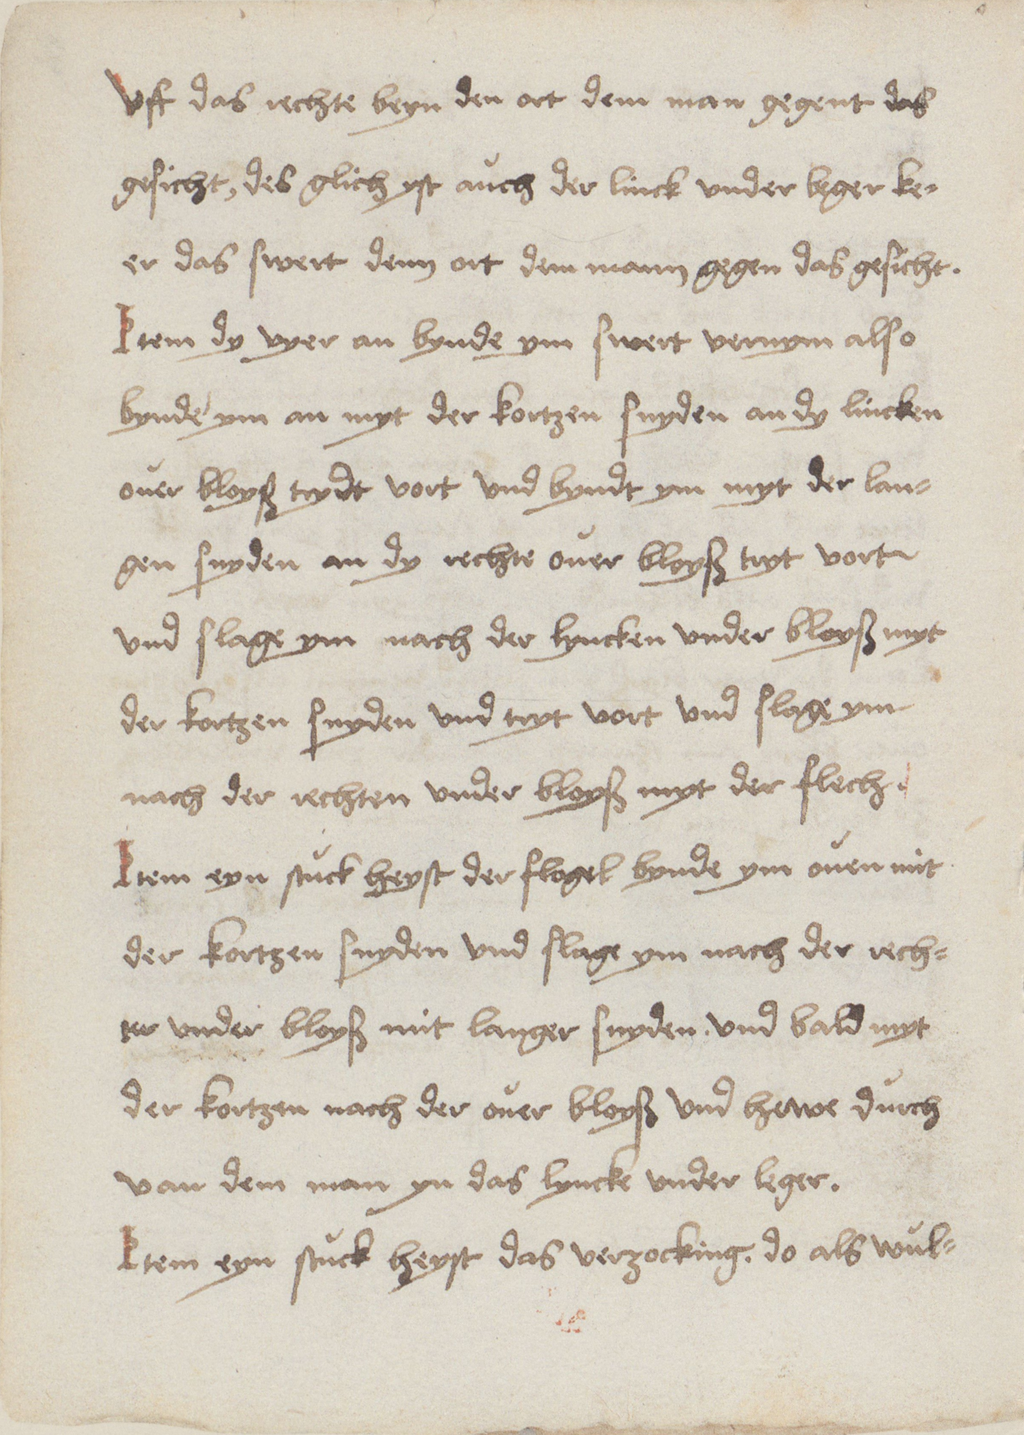 vff das rechte beyn den ort dem man gegent das
gesicht, des glich yst auch der linck vnder leger ke-
er das swert denn ort dem mann gegen das gesicht.
Item dy vyer an bynde ym swert vernym also
bynde ym an myt der kortzen snyden an dy lincken
ouer bloyß trydt vort vnd byndt ym myt der lan-
gen snyden an dy rechte ouer bloyß tryt vort
vnd slage ym nach der lyncken vnder bloyß myt
der kortzen snyden vnd tryt vort vnd slage ym
nach der rechten vnder bloyß myt der flech.
Item eyn stuck heyst der flogel bynde ym ouen mit
der kortzen snyden vnd slage ym nach der rech-
ter vnder bloyß mit langer snyden. vnd bald myt
der kortzen nach der ouer bloyß vnd hewe durch
van dem man yn das lyncke vnder leger.
Item eyn stuck heyst das verzocking. do als wul-